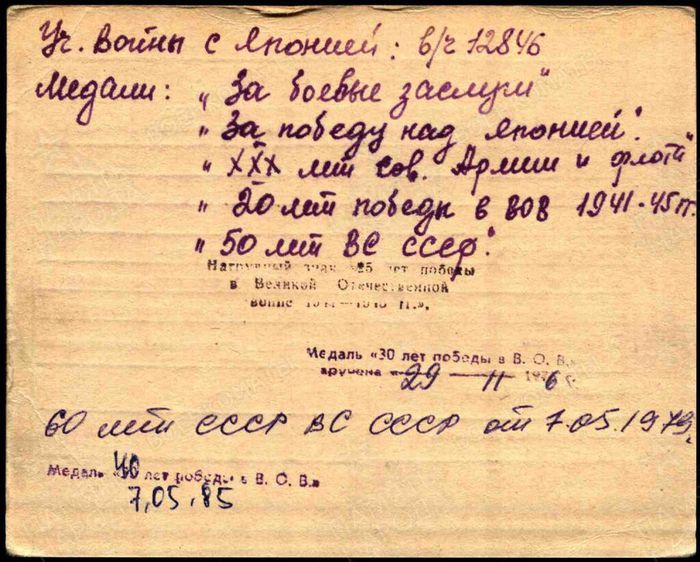 Уч. Войны с Японией: в/ч 12846
Медали: „За боевые заслуги"
„За победу над Японией".
„XXX лет Сов. Армии и флота"
„20 лет победы в ВОВ 1941-45 гг.
„50 лет ВС СССР".
Нагрудный знак «25 лет победы
в Великой Отечественной
войне 1941—1945 гг.»,
Медаль «30 лет победы в В. О. В.»
вручена «29 — II 1976 г.
60 лет СССР ВС СССР от 7.05.1979.
Медаль «40 лет победы в В. О. В.»
7.05.85